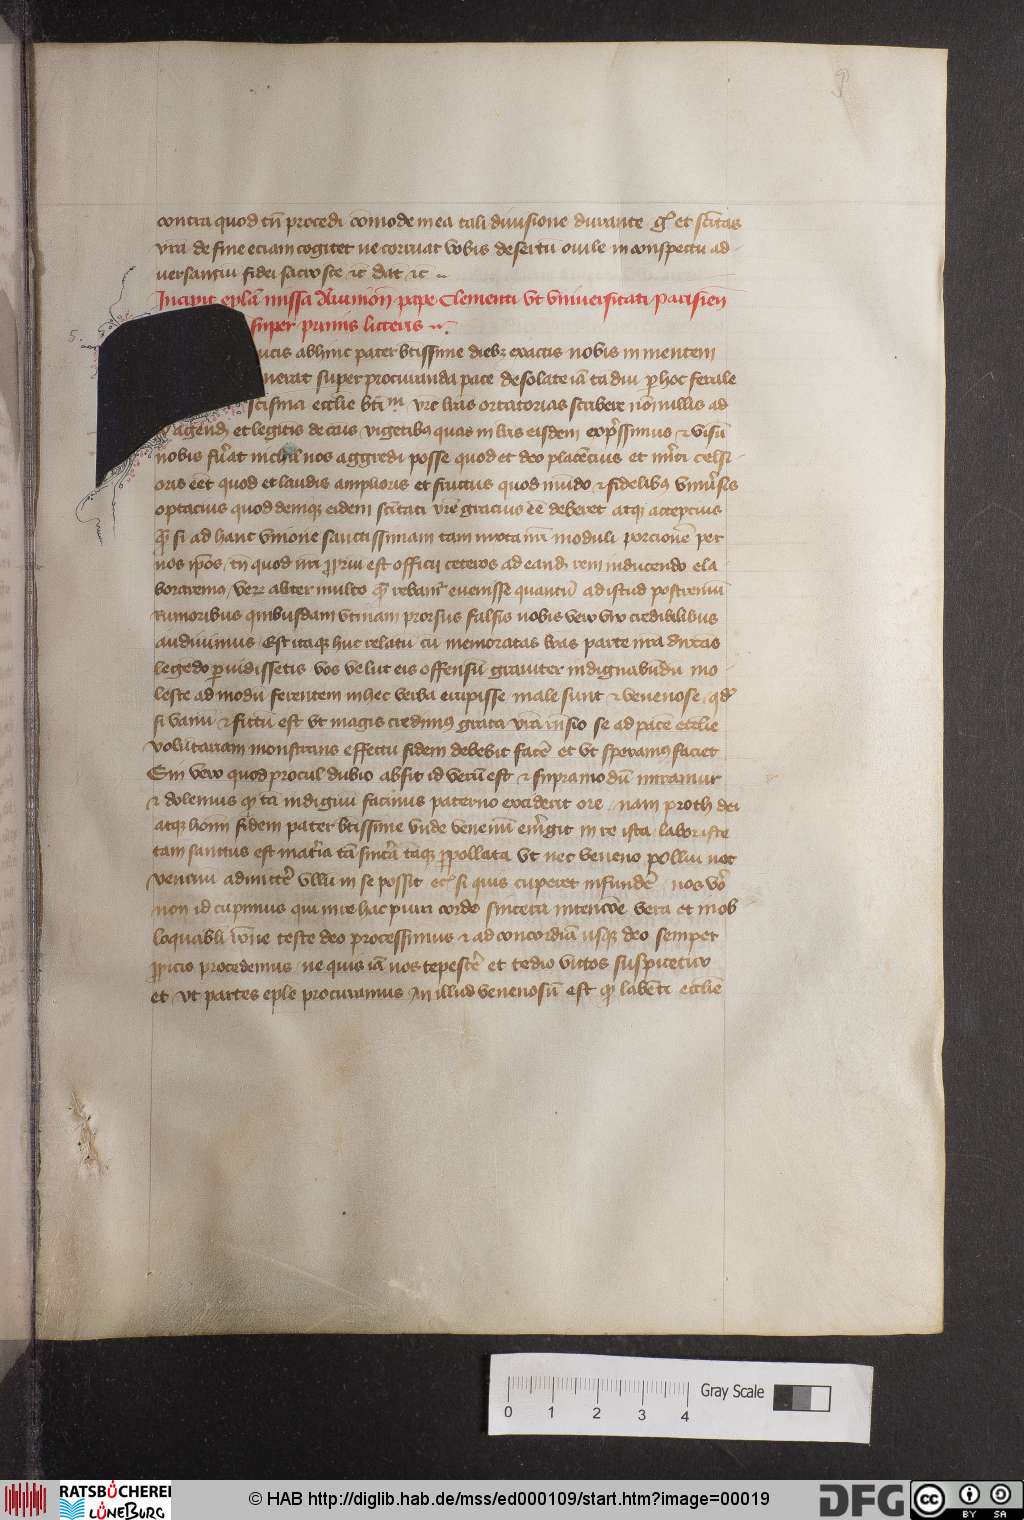 9
contra quod tn̄ procedi com̄ode mea tali diuisione durante g̾ et scītas
vr̄a de fine eciam cogitet ne corruat vobis desertū ouile in conspectu ad
uersantiū fidei sacro scē ⁊c̄ dat ⁊c̄
Incipit epl̄a missa pape Clementi vt vniuersitati parisien̄
super primis litteris
5.
ucis abhinc pater btīssime dieb exactis nobis in mentem
uenerat super procuranda pace desolate iā tā diu p hoc ferale
scisma ecclīe vr̄e lr̄as ortatorias scribere nōnullis ad
agend et legitis de causis vigētibꝫ quas in lr̄is eisdem exp̄ssimus ⁊ visū
nobis fu̾at nichil nos aggredi posse quod et deo placēcius et celsi
oris eēt quod et laudis amplioris et fructus quod mūdo ⁊ fidelibꝫ vniu̾sis
optacius quod deniqꝫ eidem scītati vr̄e gracius eē deberet atqꝫ accepcius
qꝫ si ad hanc vnione sanctissimam tam nr̄i moduli porcionē per
nos ip̄os tn̄ quod nr̄i ꝓpriū est officij ceteros ad eand rem inducendo ela
boraremꝰ verꝫ aliter multo qꝫ rebam̾ euenisse quantū ad istud postremū
rumoribus quibusdam vtinam prorsus falsis nobis vero vix credibilibus
audiuimus Est itaqꝫ huc relatū cū memoratas lr̄as parte nr̄a dirctas
legēdo ꝑuidissetis vos velut eis offensū grauiter indignabūdū mo
leste admodū ferentem in hec verba erupisse male sunt ⁊ venenose qd̾
si vanū ⁊ fictū est vt magis credimꝰ grata vr̄a se ad pacē ecclīe
voluntariam monstrans effectu fidem debebit facē et vt speramus faciet
Sin vero quod procul dubio absit id verū est ⁊ supra modū miramur
⁊ dolemus qꝫ tā indignū facinus paterno exciderit ore nam proth dei
atqꝫ hoīm fidem pater btīssime vnde venenū em̾git in re ista labor iste
tam sanctus est mat̾ia tā sinc̾a tāqꝫ ꝓpollata vt nec veneno pollui nec
venenū admitte̾ vllū in se possit et si quis cuperet infunde̾ nos v̾o
non id cupimus qui in re hac puri corde sincera intencōe vera et
teste deo processimus ⁊ ad concordiā usqꝫ deo semper
ꝓpicio procedemus ne quis iā nos tepesce̾ et tedio victos suspicetur
et vt partes procuramus An illud venenosū est qꝫ labēti ecclīe
0 1 2 3 4
Gray Scale
RATSBÜCHEREI
LÜNEBURG
© HAB http://diglib.hab.de/mss/ed000109/start.htm?image=00019
DFG
cc
BY SA